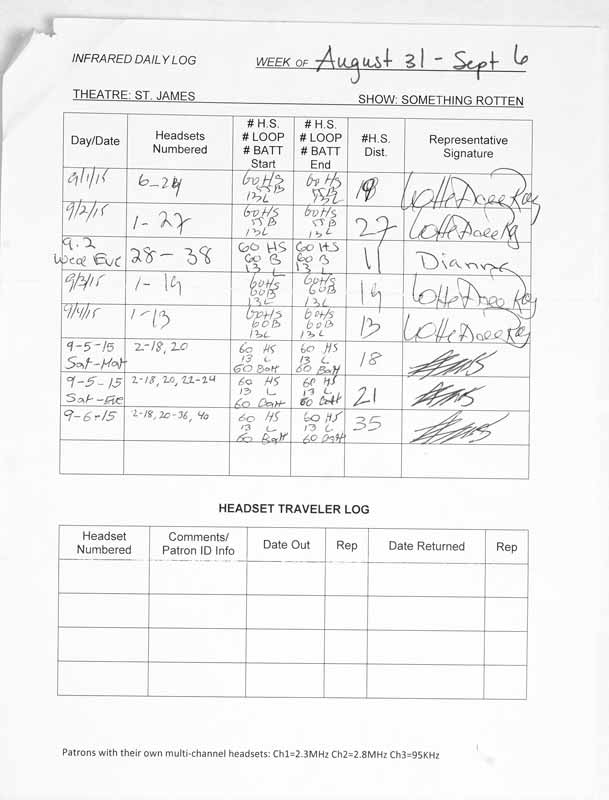 INFRARED DAILY LOG WEEK OF August 31 - Sept 6
THEATRE: ST. JAMES SHOW: SOMETHING ROTTEN
Day/Date Headsets Numbered # H.S. # LOOP # BATT Start # H.S. # LOOP # BATT End #H.S. Dist. Representative Signature
9/1/15 6-24 60HS 55B 13L 60HS 55B 13L
9/2/15 1-27 60HS 55B 13L 60HS 55B 13L 27
9.2 Wed Eve 28-38 60 HS 60 B 13 L 60 HS 60 B 13 L 11
9/3/15 1-19 60HS 60B 13L 60HS 60B 13L 19
9/4/15 1-13 60HS 60B 13L 60HS 60B 13L 13
9-5-15 Sat-Mat 2-18, 20 60 HS 13 L 60 Batt 60 HS 13 L 60 Batt 18
9-5-15 Sat-Eve 2-18, 20, 22-24 60 HS 13 L 60 Batt 60 HS 13 L 60 Batt 21
9-6-15 2-18, 20-36, 40 60 HS 13 L 60 Batt 60 HS 13 L 60 Batt 35
HEADSET TRAVELER LOG
Headset Numbered Comments/ Patron ID Info Date Out Rep Date Returned Rep
Patrons with their own multi-channel headsets: Ch1=2.3MHz Ch2=2.8MHz Ch3=95KHz